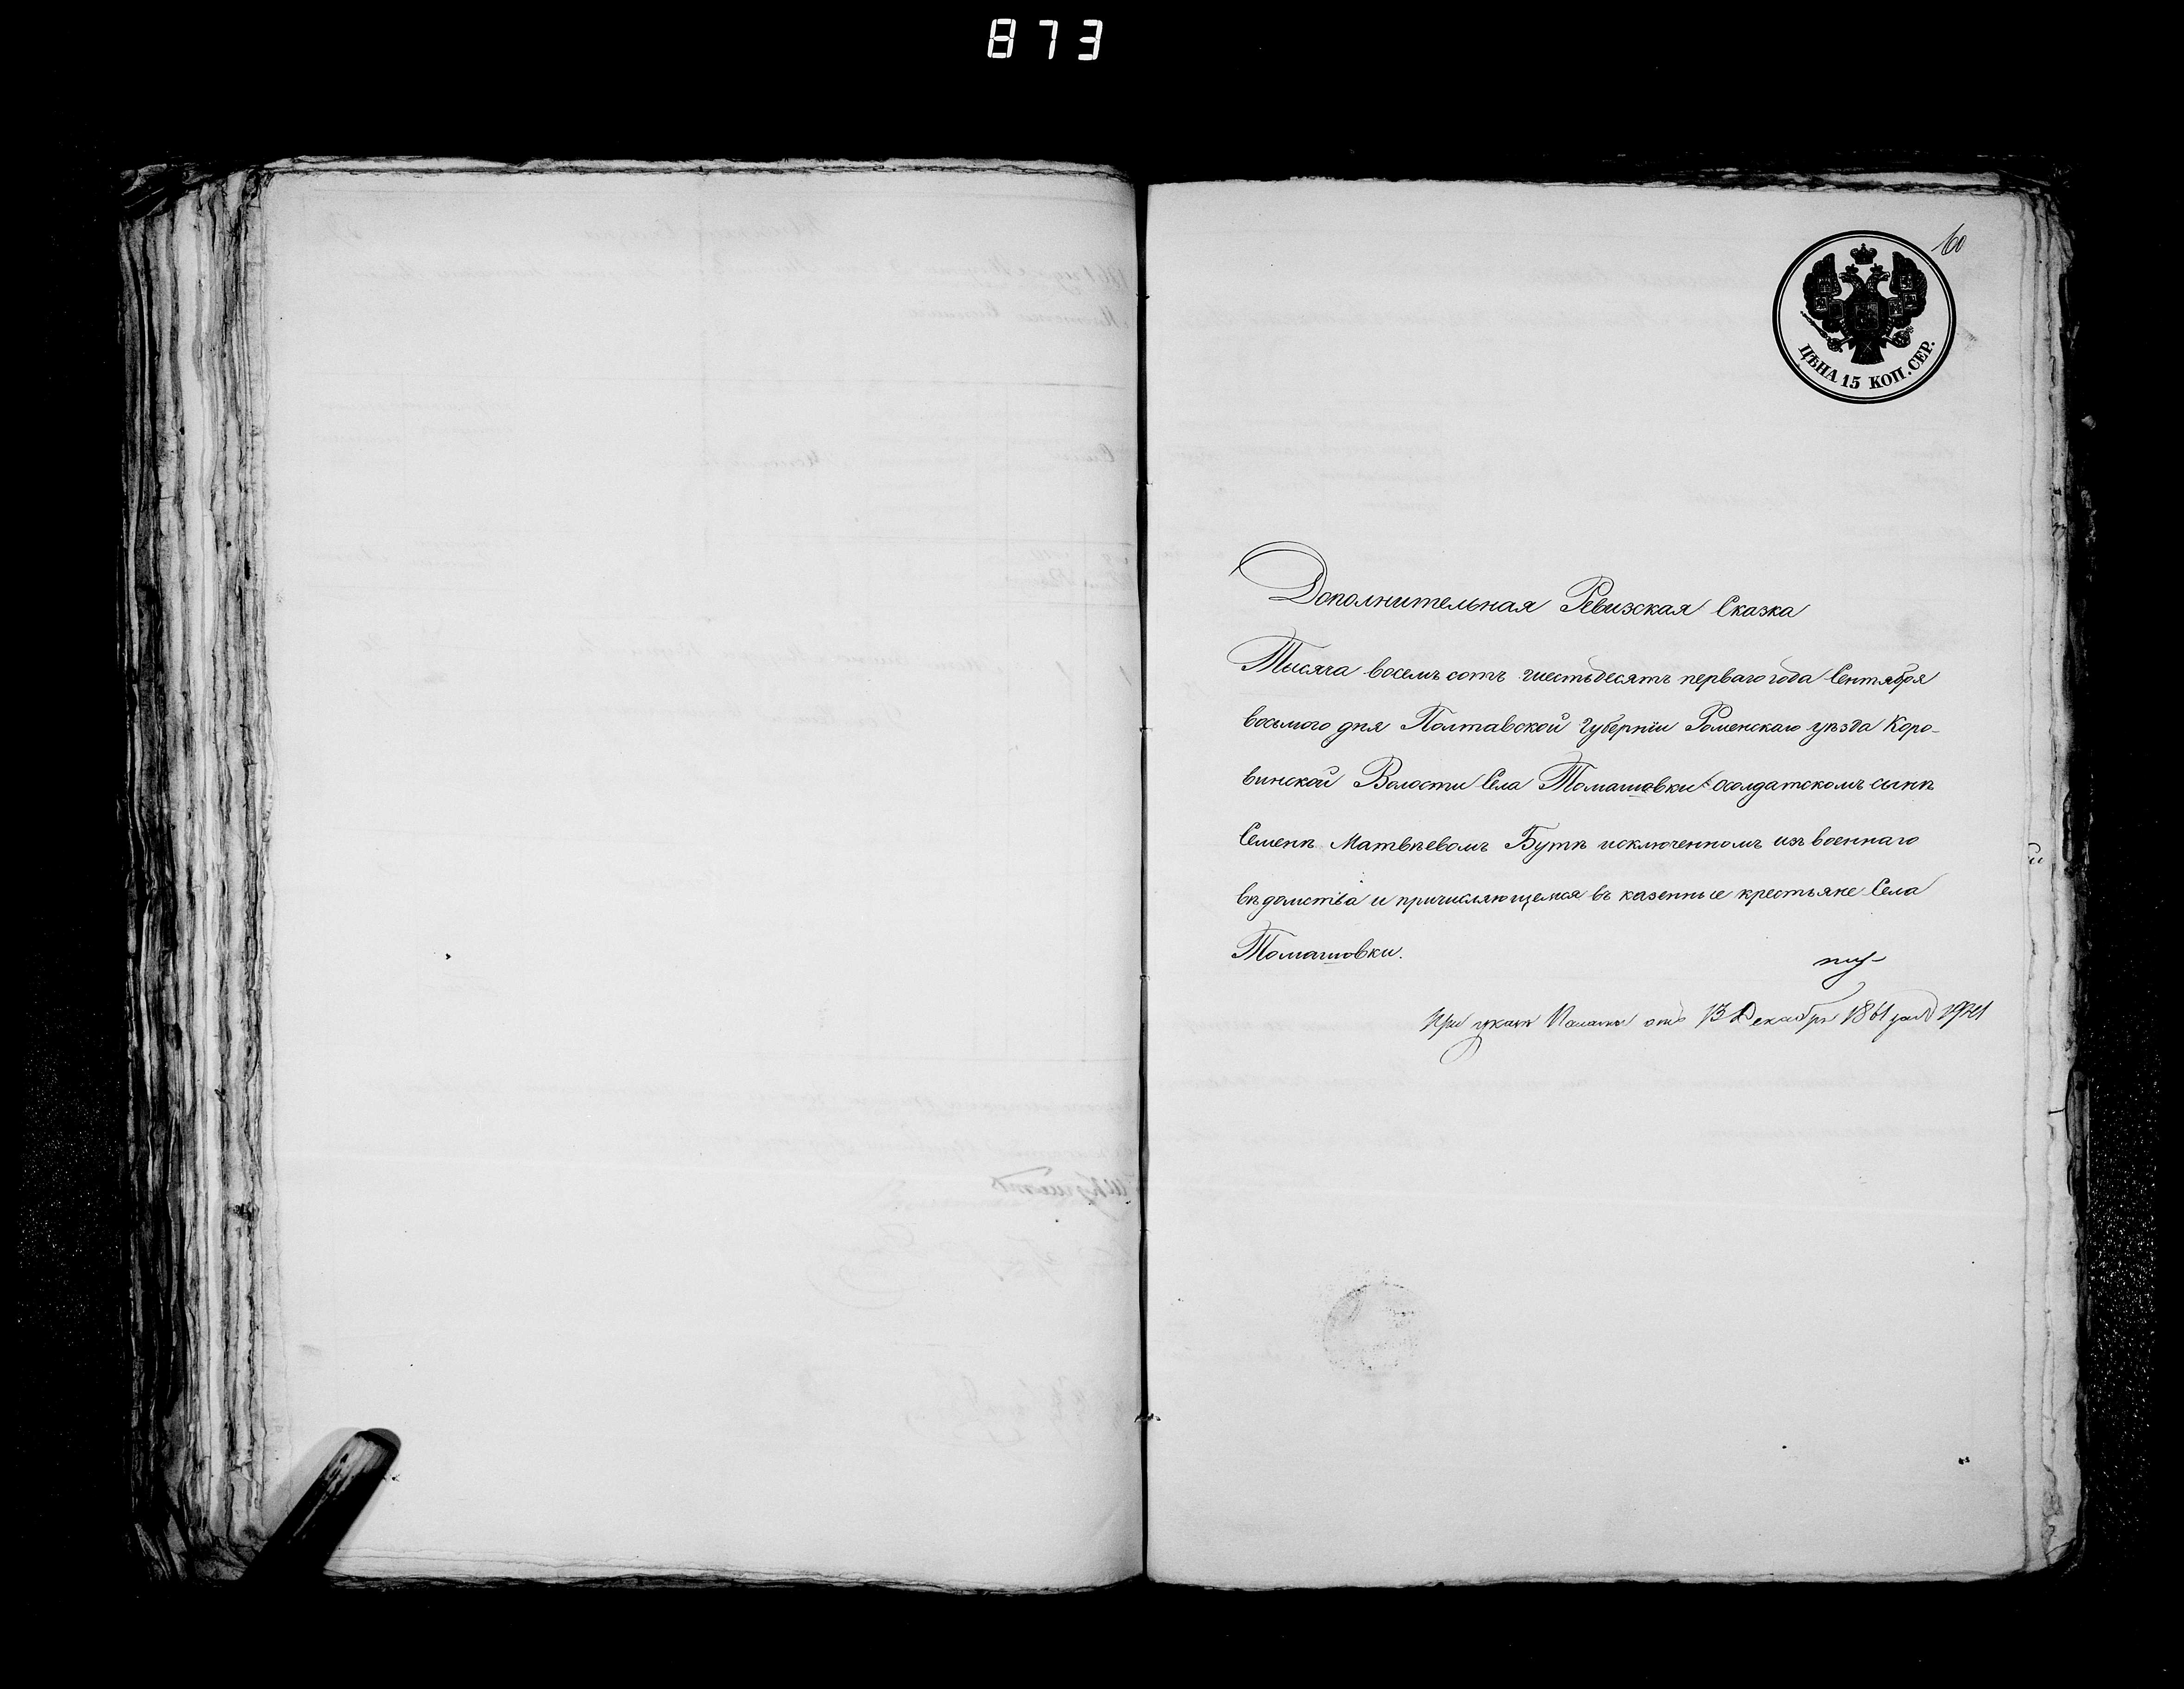 873
60
ЦѢНА 15 КОП. СЕР.
Дополнительная Ревизская Сказка
Тысяча восемь сотъ шестьдесятъ перваго года Сентября
восьмого дня Полтавской губерніи Роменскаго уѣзда Коро-
винской Волости Села Томашовки о солдатскомъ сынѣ
Семенѣ Матвѣевомъ Бутѣ исключенномъ изъ военнаго
вѣдомства и причисляющемся въ казенные крестьяне Села
Томашовки.
При указѣ Палаты отъ 13 Декабря 1861 года